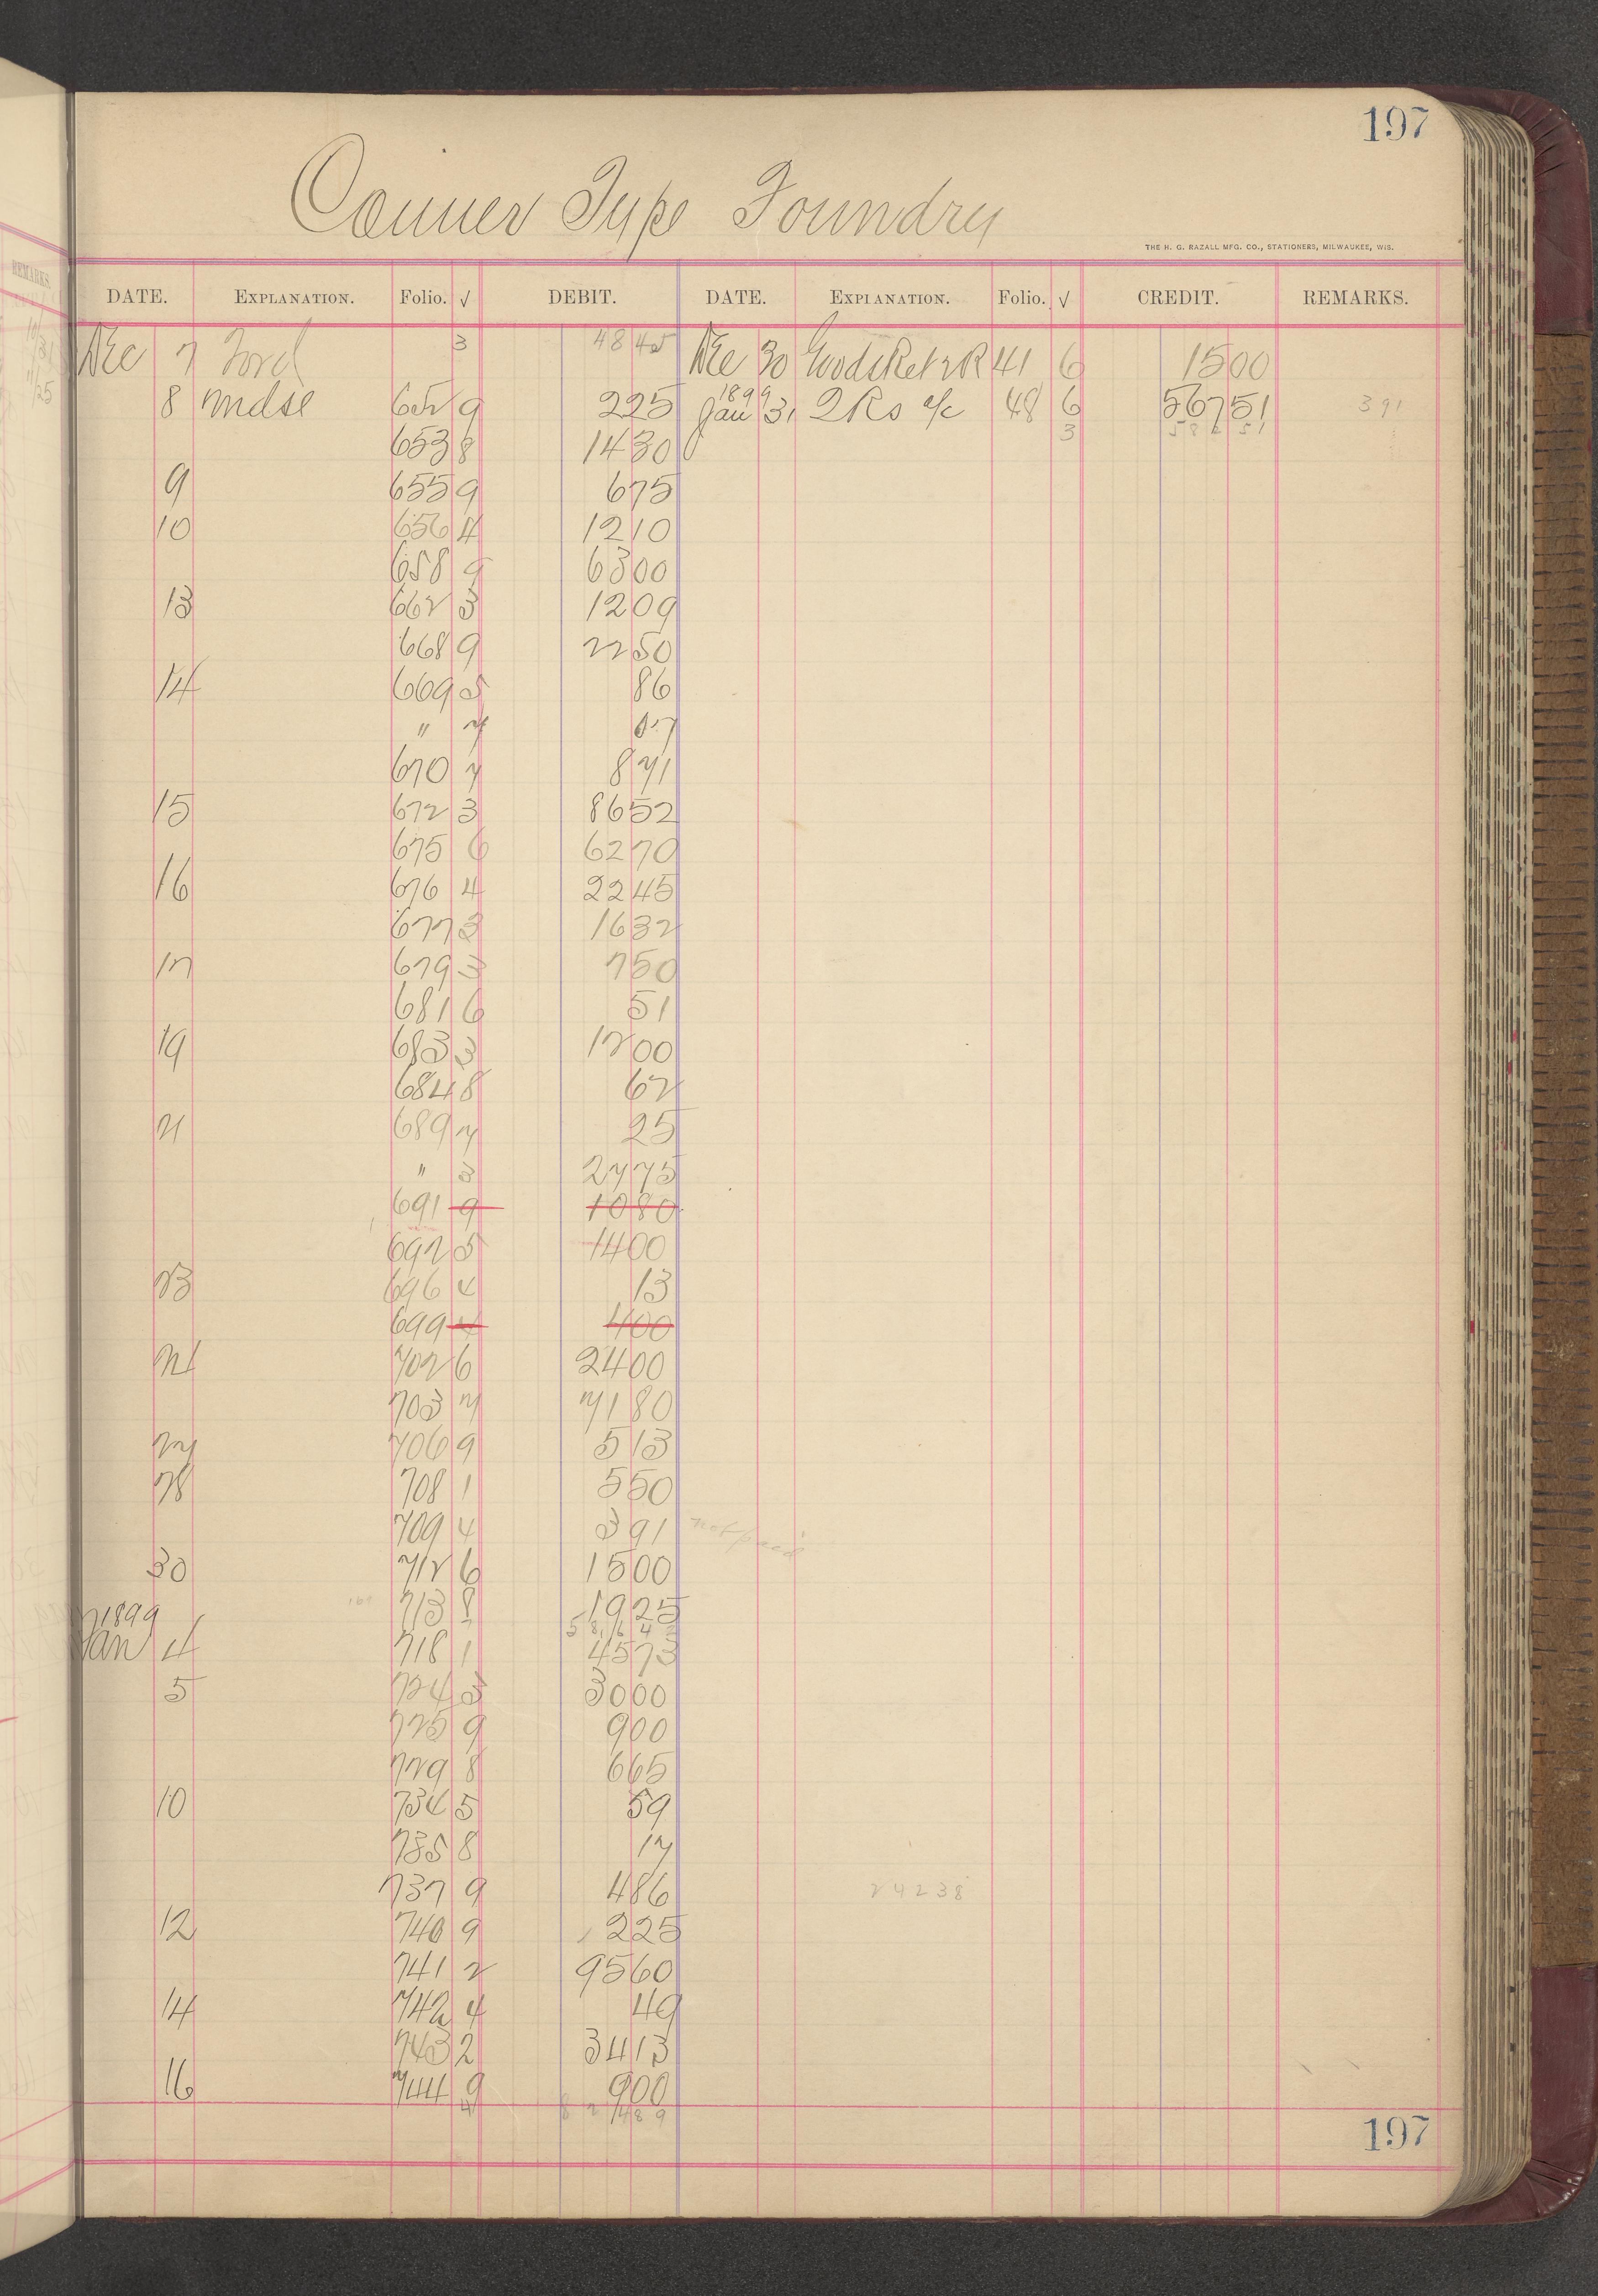 197
Conner Type Foundry
THE H. G. RAZALL MFG. CO., STATIONERS, MILWAUKEE, WIS.
DATE. EXPLANATION. Folio. √ DEBIT. DATE. EXPLANATION. Folio. √ CREDIT. REMARKS.
Dec 7 Ford 3 48 45 Dec 30 Goods Ret 41 6 15 00
8 mdse 652 9 2 25 1899 Jan 31 2 Rs a/c 48 6 567 51 391
653 8 14 30 3 582 51
9 655 9 6 75
10 656 4 12 10
658 9 63 00
13 662 3 12 09
668 9 22 50
14 669 5 86
" 7 07
670 7 8 71
15 672 3 86 52
675 6 62 70
16 676 4 22 45
677 3 16 32
17 679 3 7 50
681 6 51
19 683 3 12 00
684 8 62
21 689 7 25
" 3 27 75
691 9 10 80
692 5 14 00
23 696 4 13
699 4 4 00
24 702 6 24 00
703 7 71 80
27 706 9 5 13
28 708 1 5 50
709 4 3 91 not paid
30 712 6 15 00
713 8 19 25
1899
Jan 4 718 1 45 73
5 724 3 30 00
725 9 9 00
729 8 6 65
10 734 5 59
735 8 17
737 9 4 86 24238
12 740 9 2 25
741 2 95 60
14 742 4 49
743 2 34 13
16 744 9 9 00
4 8 2 4 8 9
197